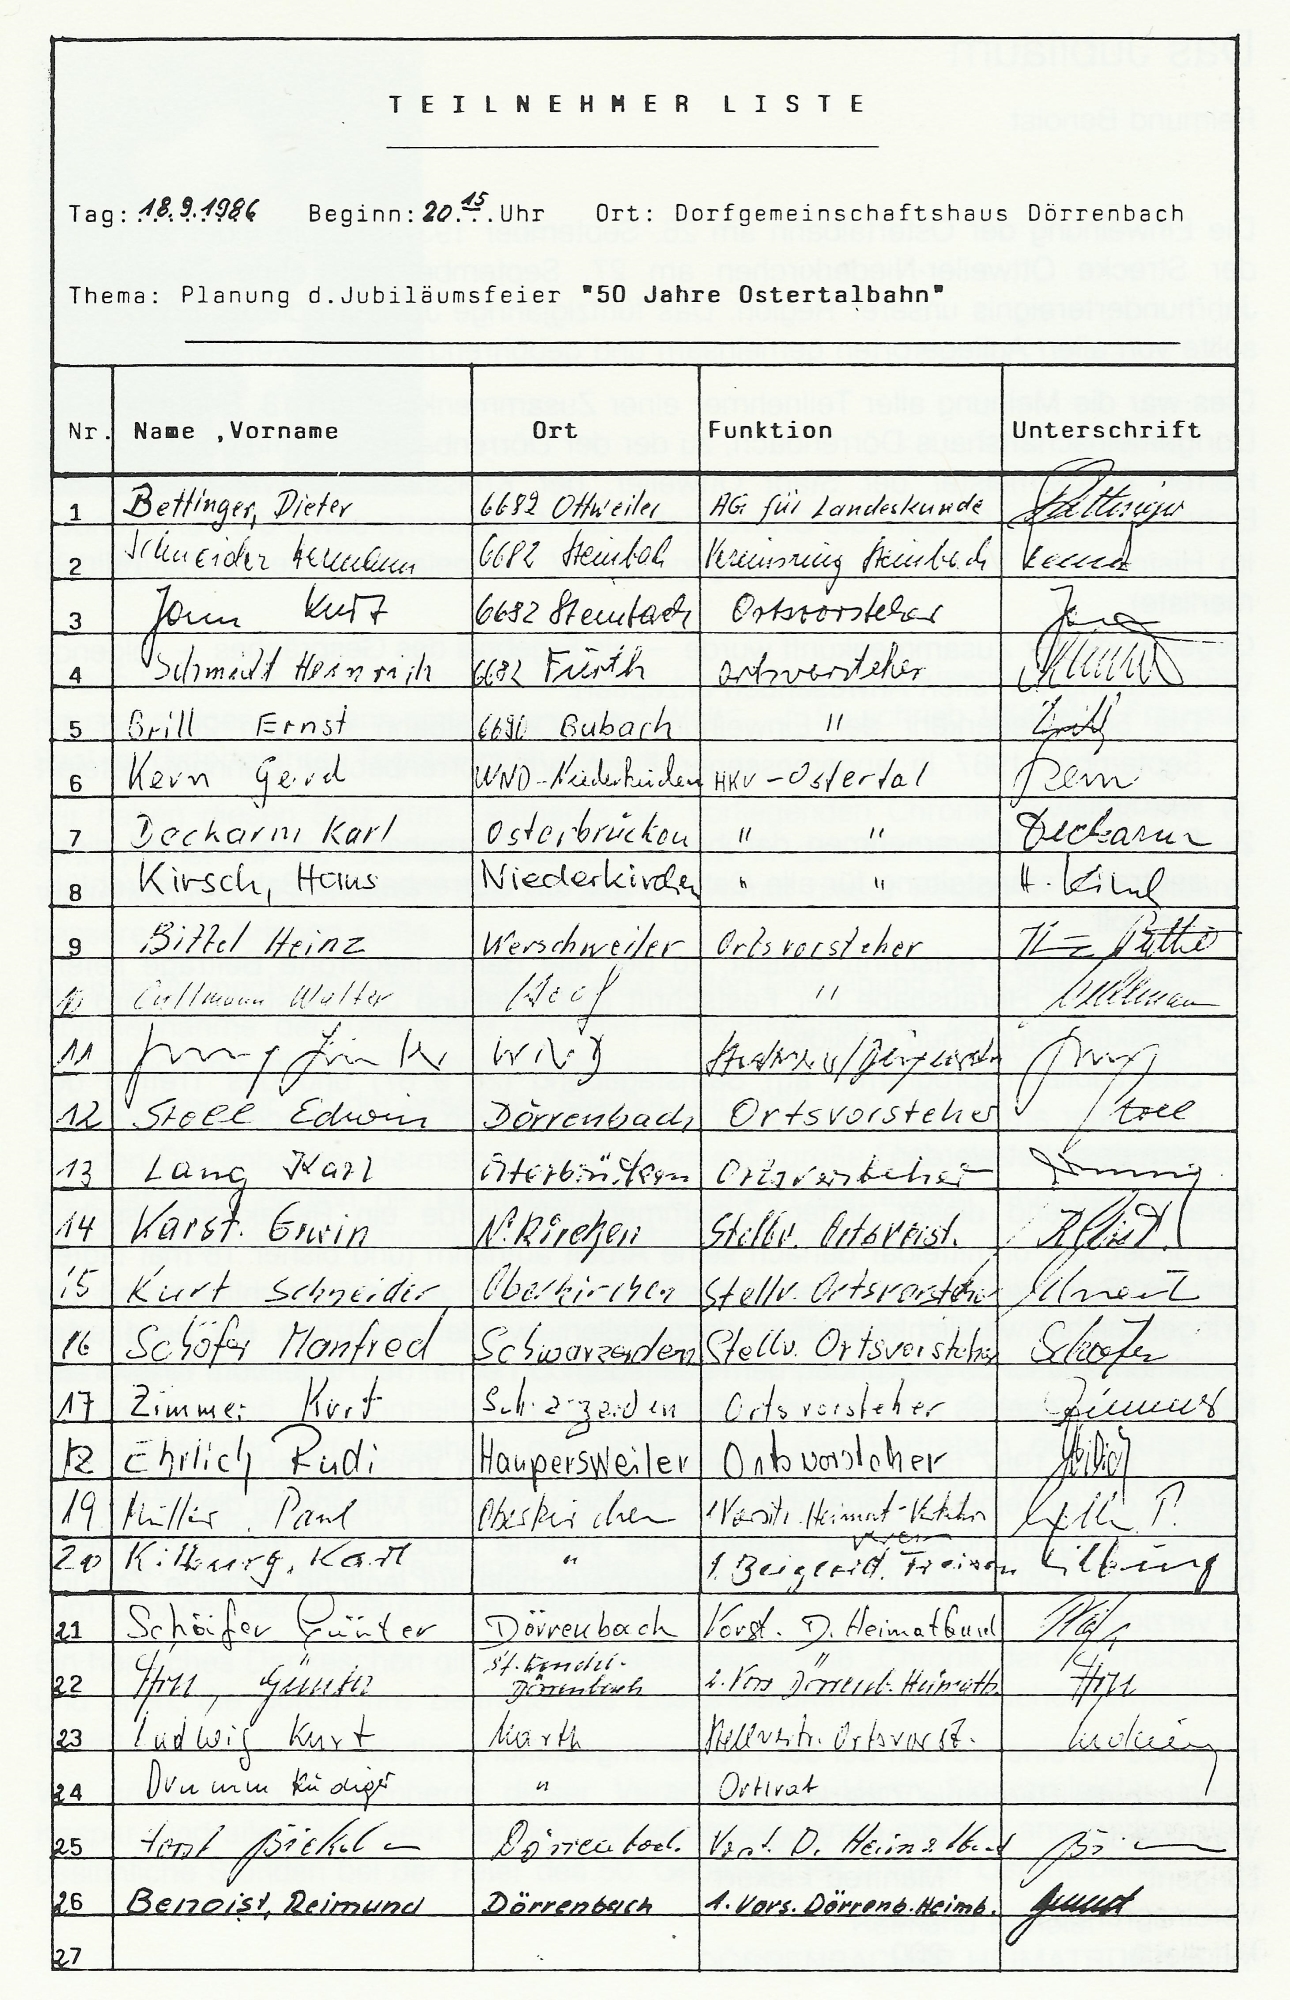 TEILNEHMER LISTE
Tag: 18.9.1986 Beginn: 20.15 Uhr Ort: Dorfgemeinschaftshaus Dörrenbach
Thema: Planung d.Jubiläumsfeier "50 Jahre Ostertalbahn"
Nr. Name ,Vorname Ort Funktion Unterschrift
1 Bettinger, Dieter 6682 Ottweiler AG für Landeskunde Bettinger
2 Schneider 6682 Steinbach Vereinsring Steinbach
3 Jann Kurt 6682 Steinbach Ortsvorsteher
4 Schmidt Heinrich 6682 Fürth Ortsvorsteher
5 Brill Ernst 6690 Bubach "
6 Kern Gerd WND-Niederkirchen HKV-Ostertal Kern
7 Decharm Karl Osterbrücken " " Decharm
8 Kirsch, Hans Niederkirchen " " H. Kirsch
9 Bittel Heinz Werschweiler Ortsvorsteher
10 Cullmann Walter Hoof " Cullmann
11 WND
12 Stoll Edwin Dörrenbach Ortsvorsteher Stoll
13 Lang Karl Osterbrücken Ortsvorsteher
14 Karst. Erwin N.Kirchen Stellv. Ortsvorst.
15 Kurt Schneider Oberkirchen Stellv. Ortsvorsteher
16 Schäfer Manfred Schwarzerden Stellv. Ortsvorsteher Schäfer
17 Zimmer Kurt Schwarzerden Ortsvorsteher Zimmer
18 Ehrlich Rudi Haupersweiler Ortsvorsteher
19 Müller, Paul Oberkirchen
20 Kilburg, Karl " 1. Beigeord. Freisen Kilburg
21 Schäfer Günter Dörrenbach Vorst. D. Heimatbund
22 Günter St. Wendel-
Dörrenbach 2. Vors Dörrenb. Heimatb.
23 Ludwig Kurt Marth Stellvertr. Ortsvorst. Ludwig
24 Rüdiger " Ortsrat
25 Dörrenbach Vorst. D. Heimatbund
26 Benoist, Reimund Dörrenbach 1. Vors. Dörrenb. Heimb.
27